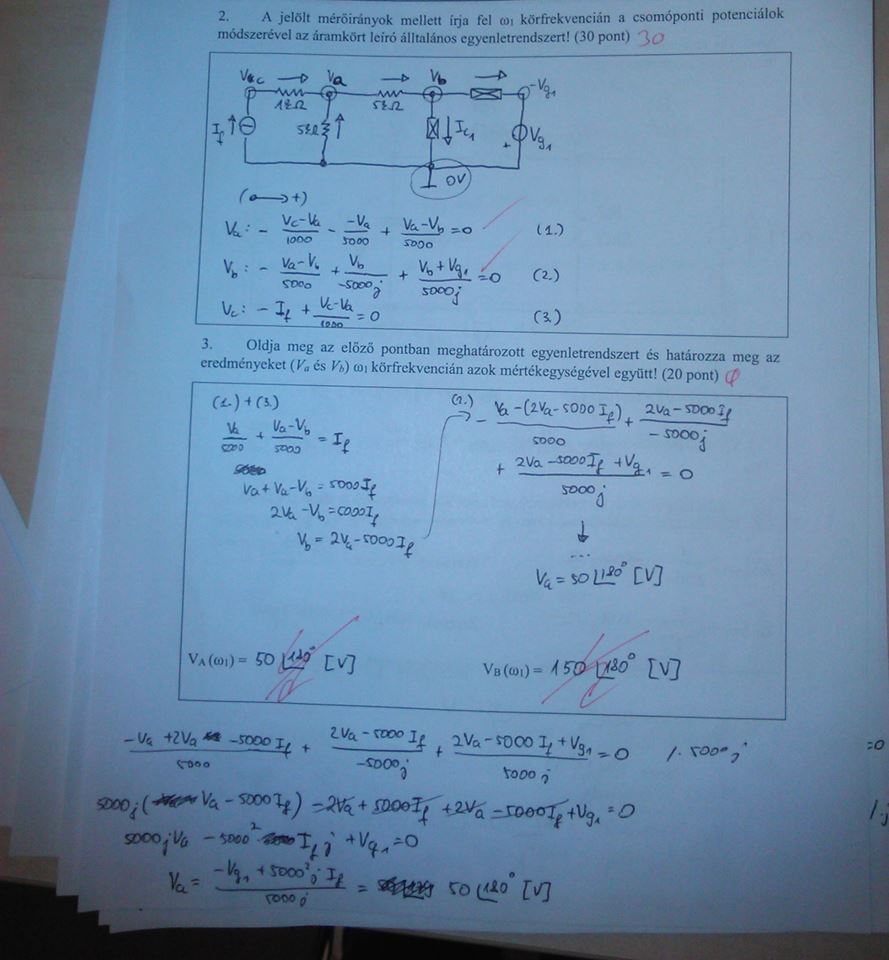 2. A jelölt mérőirányok mellett írja fel ω₁ körfrekvencián a csomóponti potenciálok
módszerével az áramkört leíró álltalános egyenletrendszert! (30 pont) 30
Vc Va Vb -Vg₁
1kΩ 5kΩ
If 5kΩ Ic₁ + Vg₁
0V
(o→+)
Va: - (Vc-Va)/1000 - (-Va)/5000 + (Va-Vb)/5000 = 0 (1.)
Vb: - (Va-Vb)/5000 + Vb/(-5000j) + (Vb+Vg₁)/(5000j) = 0 (2.)
Vc: - If + (Vc-Va)/1000 = 0 (3.)
3. Oldja meg az előző pontban meghatározott egyenletrendszert és határozza meg az
eredményeket (Va és Vb) ω₁ körfrekvencián azok mértékegységével együtt! (20 pont)
(1.)+(3.)
Va/5000 + (Va-Vb)/5000 = If
Va+Va-Vb = 5000If
2Va-Vb = 5000If
Vb = 2Va-5000If
(2.) → - (Va-(2Va-5000If))/5000 + (2Va-5000If)/(-5000j)
+ (2Va-5000If+Vg₁)/(5000j) = 0
↓
...
Va = 50∠180° [V]
VA(ω₁) = 50∠180° [V] VB(ω₁) = 150∠180° [V]
(-Va+2Va-5000If)/5000 + (2Va-5000If)/(-5000j) + (2Va-5000If+Vg₁)/(5000j) = 0 /·5000j
5000j(Va-5000If) -2Va+5000If+2Va-5000If+Vg₁=0
5000jVa-5000²If j+Vg₁=0
Va = (-Vg₁+5000²j If)/(5000j) = 50∠180° [V]
=0
/j